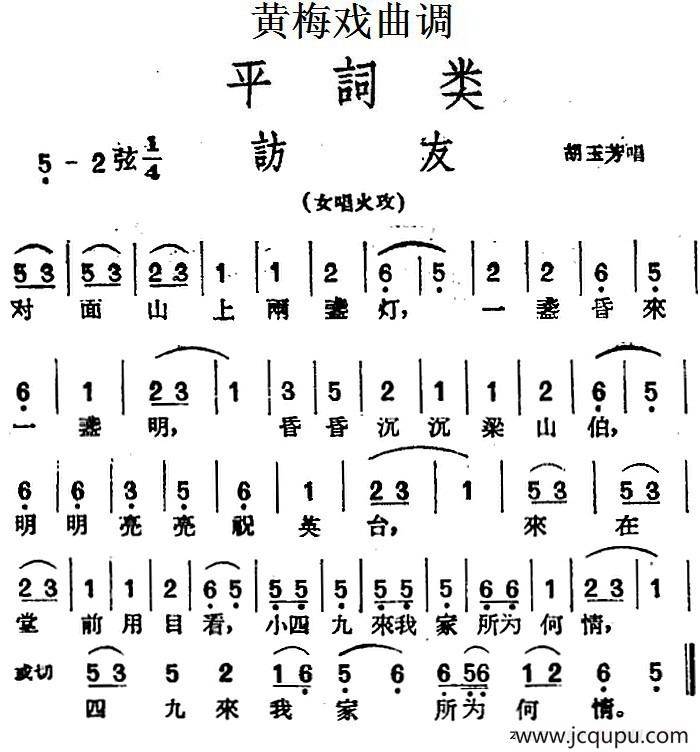 黄梅戏曲调
平詞类
5 - 2 弦 1/4 訪友 胡玉芳唱
(女唱火攻)
5 3 | 5 3 | 2 3 | 1 | 1 | 2 | 6 | 5 | 2 | 2 | 6 | 5 |
对面山上兩盞灯,一盞昏來
6 | 1 | 2 3 | 1 | 3 | 5 | 2 | 1 | 1 | 2 | 6 | 5 |
一盞明,昏昏沉沉梁山伯,
6 | 6 | 3 | 5 | 6 | 1 | 2 3 | 1 | 5 3 | 5 3 |
明明亮亮祝英台,來在
2 3 | 1 | 1 | 2 | 6 5 | 5 5 | 5 | 5 5 | 5 | 6 6 | 1 | 2 3 | 1 |
堂前用目看,小四九來我家所为何情,
或切 5 3 5 2 1 6 5 6 6 5 6 1 2 6 5
四九來我家所为何情。
www.jcqupu.com